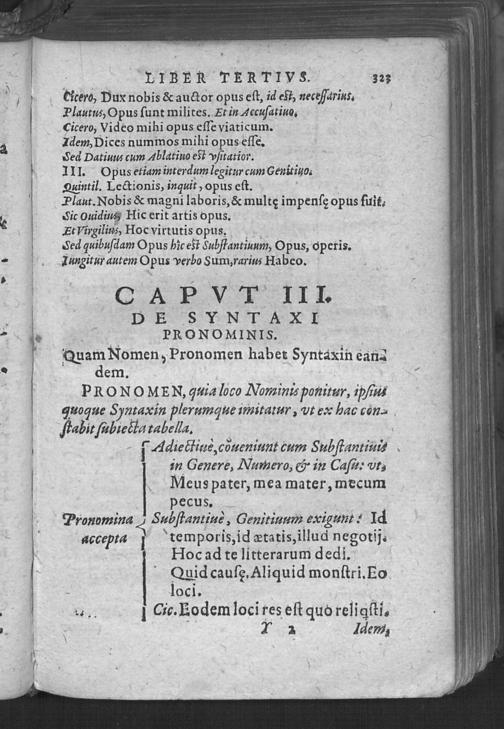 LIBER TERTIVS. 323
Cicero, Dux nobis & auctor opus est, id est, necessarius.
Plautus, Opus sunt milites. Et in Accusatiuo.
Cicero, Video mihi opus esse viaticum.
Idem, Dices nummos mihi opus esse.
Sed Datiuus cum Ablatiuo est vsitatior.
III. Opus etiam interdum legitur cum Genitiuo.
Quintil. Lectionis, inquit, opus est.
Plaut. Nobis & magni laboris, & multę impensę opus fuit.
Sic Ouidius, Hic erit artis opus.
Et Virgilius, Hoc virtutis opus.
Sed quibusdam Opus hîc est Substantiuum, Opus, operis.
Iungitur autem Opus verbo Sum, rarius Habeo.
CAPVT III.
DE SYNTAXI
PRONOMINIS.
Quam Nomen, Pronomen habet Syntaxin ean-
dem.
PRONOMEN, quia loco Nominis ponitur, ipsius
quoque Syntaxin plerumque imitatur, vt ex hac con-
stabit subiecta tabella.
Adiectiuè, cōueniunt cum Substantiuis
in Genere, Numero, & in Casu: vt,
Meus pater, mea mater, mecum
pecus.
Pronomina accepta
Substantiuè, Genitiuum exigunt: Id
temporis, id ætatis, illud negotij.
Hoc ad te litterarum dedi.
Quid causę. Aliquid monstri. Eo
loci.
Cic. Eodem loci res est quo reliqsti.
Y 2 Idem,